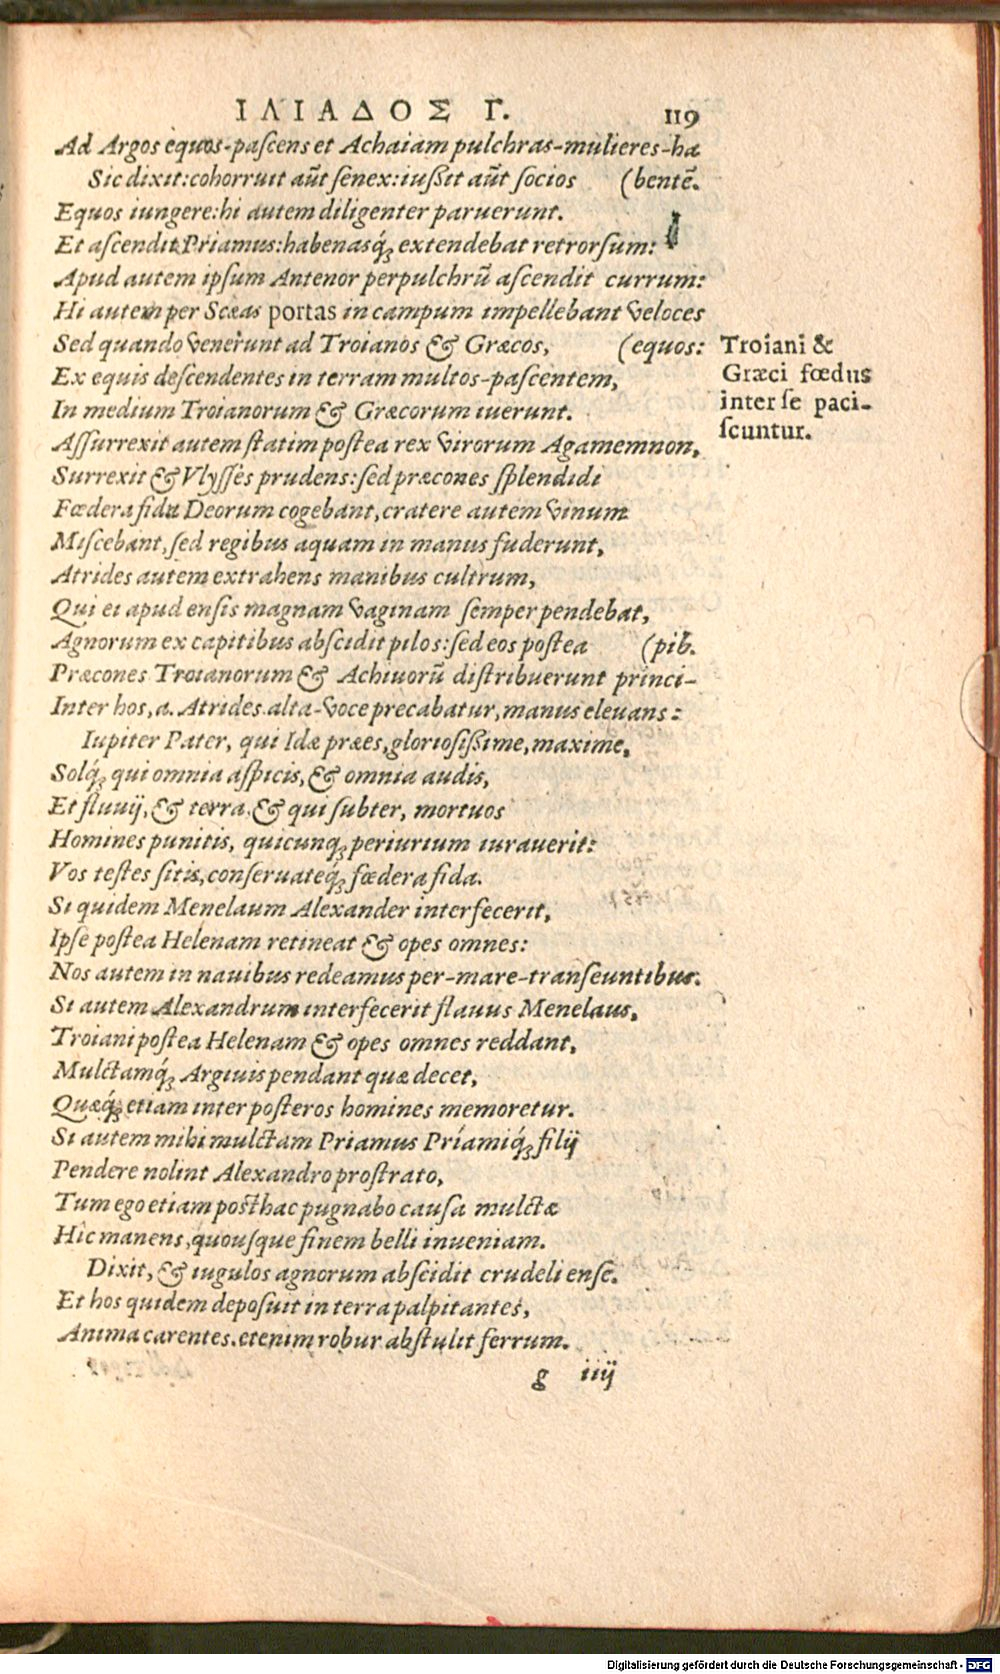 ΙΛΙΑΔΟΣ Γ. 119
Ad Argos equos-pascens et Achaiam pulchras-mulieres-ha
Sic dixit: cohorruit aūt senex: iußit aūt socios (bentē.
Equos iungere: hi autem diligenter paruerunt.
Et ascendit Priamus: habenasq́; extendebat retrorsum:
Apud autem ipsum Antenor perpulchrū ascendit currum:
Hi autem per Scæas portas in campum impellebant veloces
Sed quando venerunt ad Troianos & Græcos, (equos:
Ex equis descendentes in terram multos-pascentem,
In medium Troianorum & Græcorum iuerunt.
Assurrexit autem statim postea rex virorum Agamemnon,
Surrexit & Vlysses prudens: sed præcones splendidi
Fœdera fida Deorum cogebant, cratere autem vinum
Miscebant, sed regibus aquam in manus fuderunt,
Atrides autem extrahens manibus cultrum,
Qui ei apud ensis magnam vaginam semper pendebat,
Agnorum ex capitibus abscidit pilos: sed eos postea (pib.
Præcones Troianorum & Achiuorū distribuerunt princi-
Inter hos, a. Atrides alta-voce precabatur, manus eleuans:
Iupiter Pater, qui Idæ præes, gloriosißime, maxime,
Solq́; qui omnia aspicis, & omnia audis,
Et fluuij, & terra, & qui subter, mortuos
Homines punitis, quicunq; periurium iurauerit:
Vos testes sitis, conseruateq́; fœdera fida.
Si quidem Menelaum Alexander interfecerit,
Ipse postea Helenam retineat & opes omnes:
Nos autem in nauibus redeamus per-mare-transeuntibus.
Si autem Alexandrum interfecerit flauus Menelaus,
Troiani postea Helenam & opes omnes reddant,
Mulctamq́; Argiuis pendant quæ decet,
Quæq́; etiam inter posteros homines memoretur.
Si autem mihi mulctam Priamus Príamiq́; filij
Pendere nolint Alexandro prostrato,
Tum ego etiam posthac pugnabo causa mulctæ
Hic manens, quousque finem belli inueniam.
Dixit, & iugulos agnorum abscidit crudeli ense.
Et hos quidem deposuit in terra palpitantes,
Anima carentes. etenim robur abstulit ferrum.
g iiij
Troiani &
Græci fœdus
inter se paci-
scuntur.
Digitalisierung gefördert durch die Deutsche Forschungsgemeinschaft - DFG